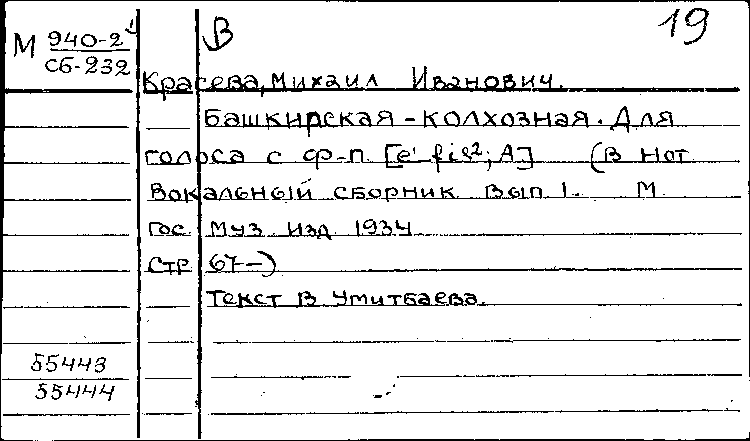 19
В
М 940-2
Сб-232
Красева, Михаил Иванович.
Башкирская - колхозная. Для
голоса с ф-п. [e' fis²; A] (В нот
вокальный сборник вып 1. М.
Гос. Муз изд 1934
Стр 67-)
Текст В Умитбаева.
55443
55444